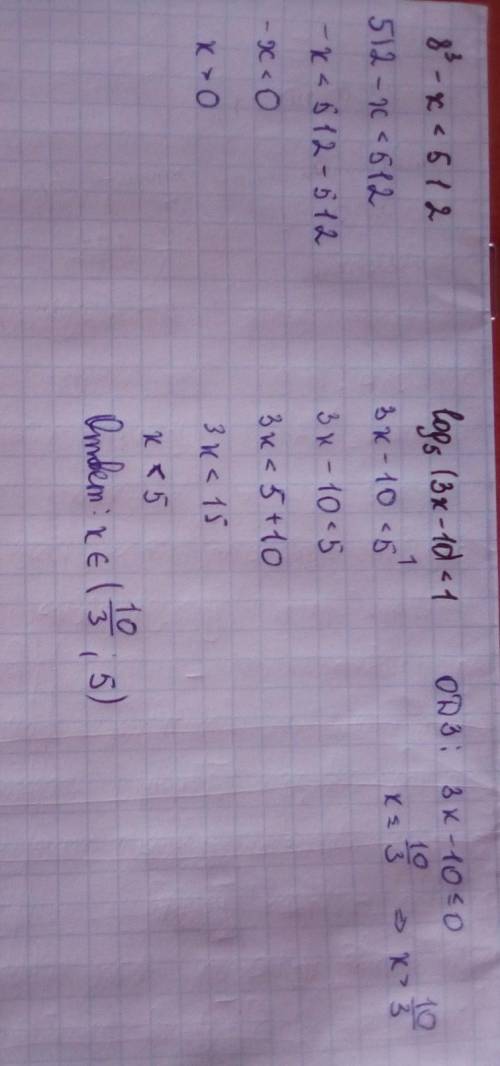 8³ - x < 512
512 - x < 512
-x < 512 - 512
-x < 0
x > 0
log₅ (3x-10) < 1
3x - 10 < 5¹
3x - 10 < 5
3x < 5 + 10
3x < 15
x < 5
Ответ: x ∈ (10/3 ; 5)
ОДЗ: 3x - 10 ≤ 0
x ≤ 10/3 ⇒ x > 10/3